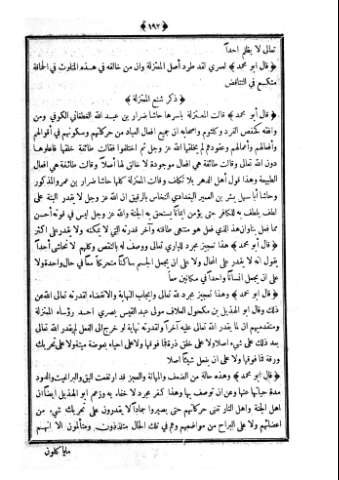 ﴿ ١٩٢ ﴾
تعالى لا يظلم احداً
﴿ قال ابو محمد ﴾ لعمري لقد طرد أصل المعتزلة وان من خالفه في هذه لمتلوث في الحماقة
متكسع في التناقض
﴿ ذكر شنع المعتزلة ﴾
﴿ قال أبو محمد ﴾ قالت المعتزلة بأسرها حاشا ضرار بن عبد الله الغطفاني الكوفي ومن
وافقه كحفص الفرد وكلثوم وأصحابه ان جميع افعال العباد من حركاتهم وسكونهم في أقوالهم
وأفعالهم وعقودهم لم يخلقها الله عز وجل ثم اختلفوا فقالت طائفة خلقها فاعلوها
دون الله تعالى وقالت طائفة هي افعال موجودة لا خالق لها أصلا وقالت طائفة هي افعال
الطبيعة وهذا قول أهل الدهر بلا تكلف وقالت المعتزلة كلها حاشا ضرار بن عمرو المذكور
وحاشا أبا سهل بشر بن المعتمر البغدادي النخاس بالرقيق ان الله عز وجل لا يقدر البتة على
لطف يلطف به للكافر حتى يؤمن ايماناً يستحق به الجنة والله عز وجل ليس في قوته أحسن
مما فعل بنا وان هذا الذي فعل هو منتهى طاقته وآخر قدرته التي لا يمكنه ولا يقدر على اكثر
﴿ قال أبو محمد ﴾ هذا تعجيز مجرد للباري تعالى ووصف له بالنقص وكلهم لا نحاشي أحداً
يقول انه لا يقدر على المحال ولا على ان يجعل الجسم ساكناً متحركاً معاً في حال واحدة ولا
على ان يجعل انساناً واحداً في مكانين معاً
﴿ قال ابو محمد ﴾ وهذا تعجيز مجرد لله تعالى وايجاب النهاية والانقضاء لقدرته تعالى الله عن
ذلك وقال ابو الهذيل بن مكحول العلاف مولى عبد القيس بصري احد رؤساء المعتزلة
ومتقدميهم ان ما يقدر الله تعالى عليه آخراً ولقدرته نهاية لو خرج الى الفعل لم يقدر الله تعالى
بعد ذلك على شيء اصلا ولا على خلق ذرة فما فوقها ولا على احياء بعوضة ميتة ولا على تحريك
ورقة فما فوقها ولا على ان يفعل شيئاً اصلا
﴿ قال ابو محمد ﴾ وهذه حالة من الضعف والمهانة والعجز قد ارتفعت البق والبراغيث والدود
مدة حياتها عنها وعن ان توصف بها وهذا كفر مجرد لا خفاء به وزعم ابو الهذيل ايضاً ان
اهل الجنة واهل النار تفنى حركاتهم حتى يصيروا جماداً لا يقدرون على تحريك شيء من
اعضائهم ولا على البراح من مواضعهم وهم في تلك الحال متلذذون ومتألمون الا انهم
ما يأكلون